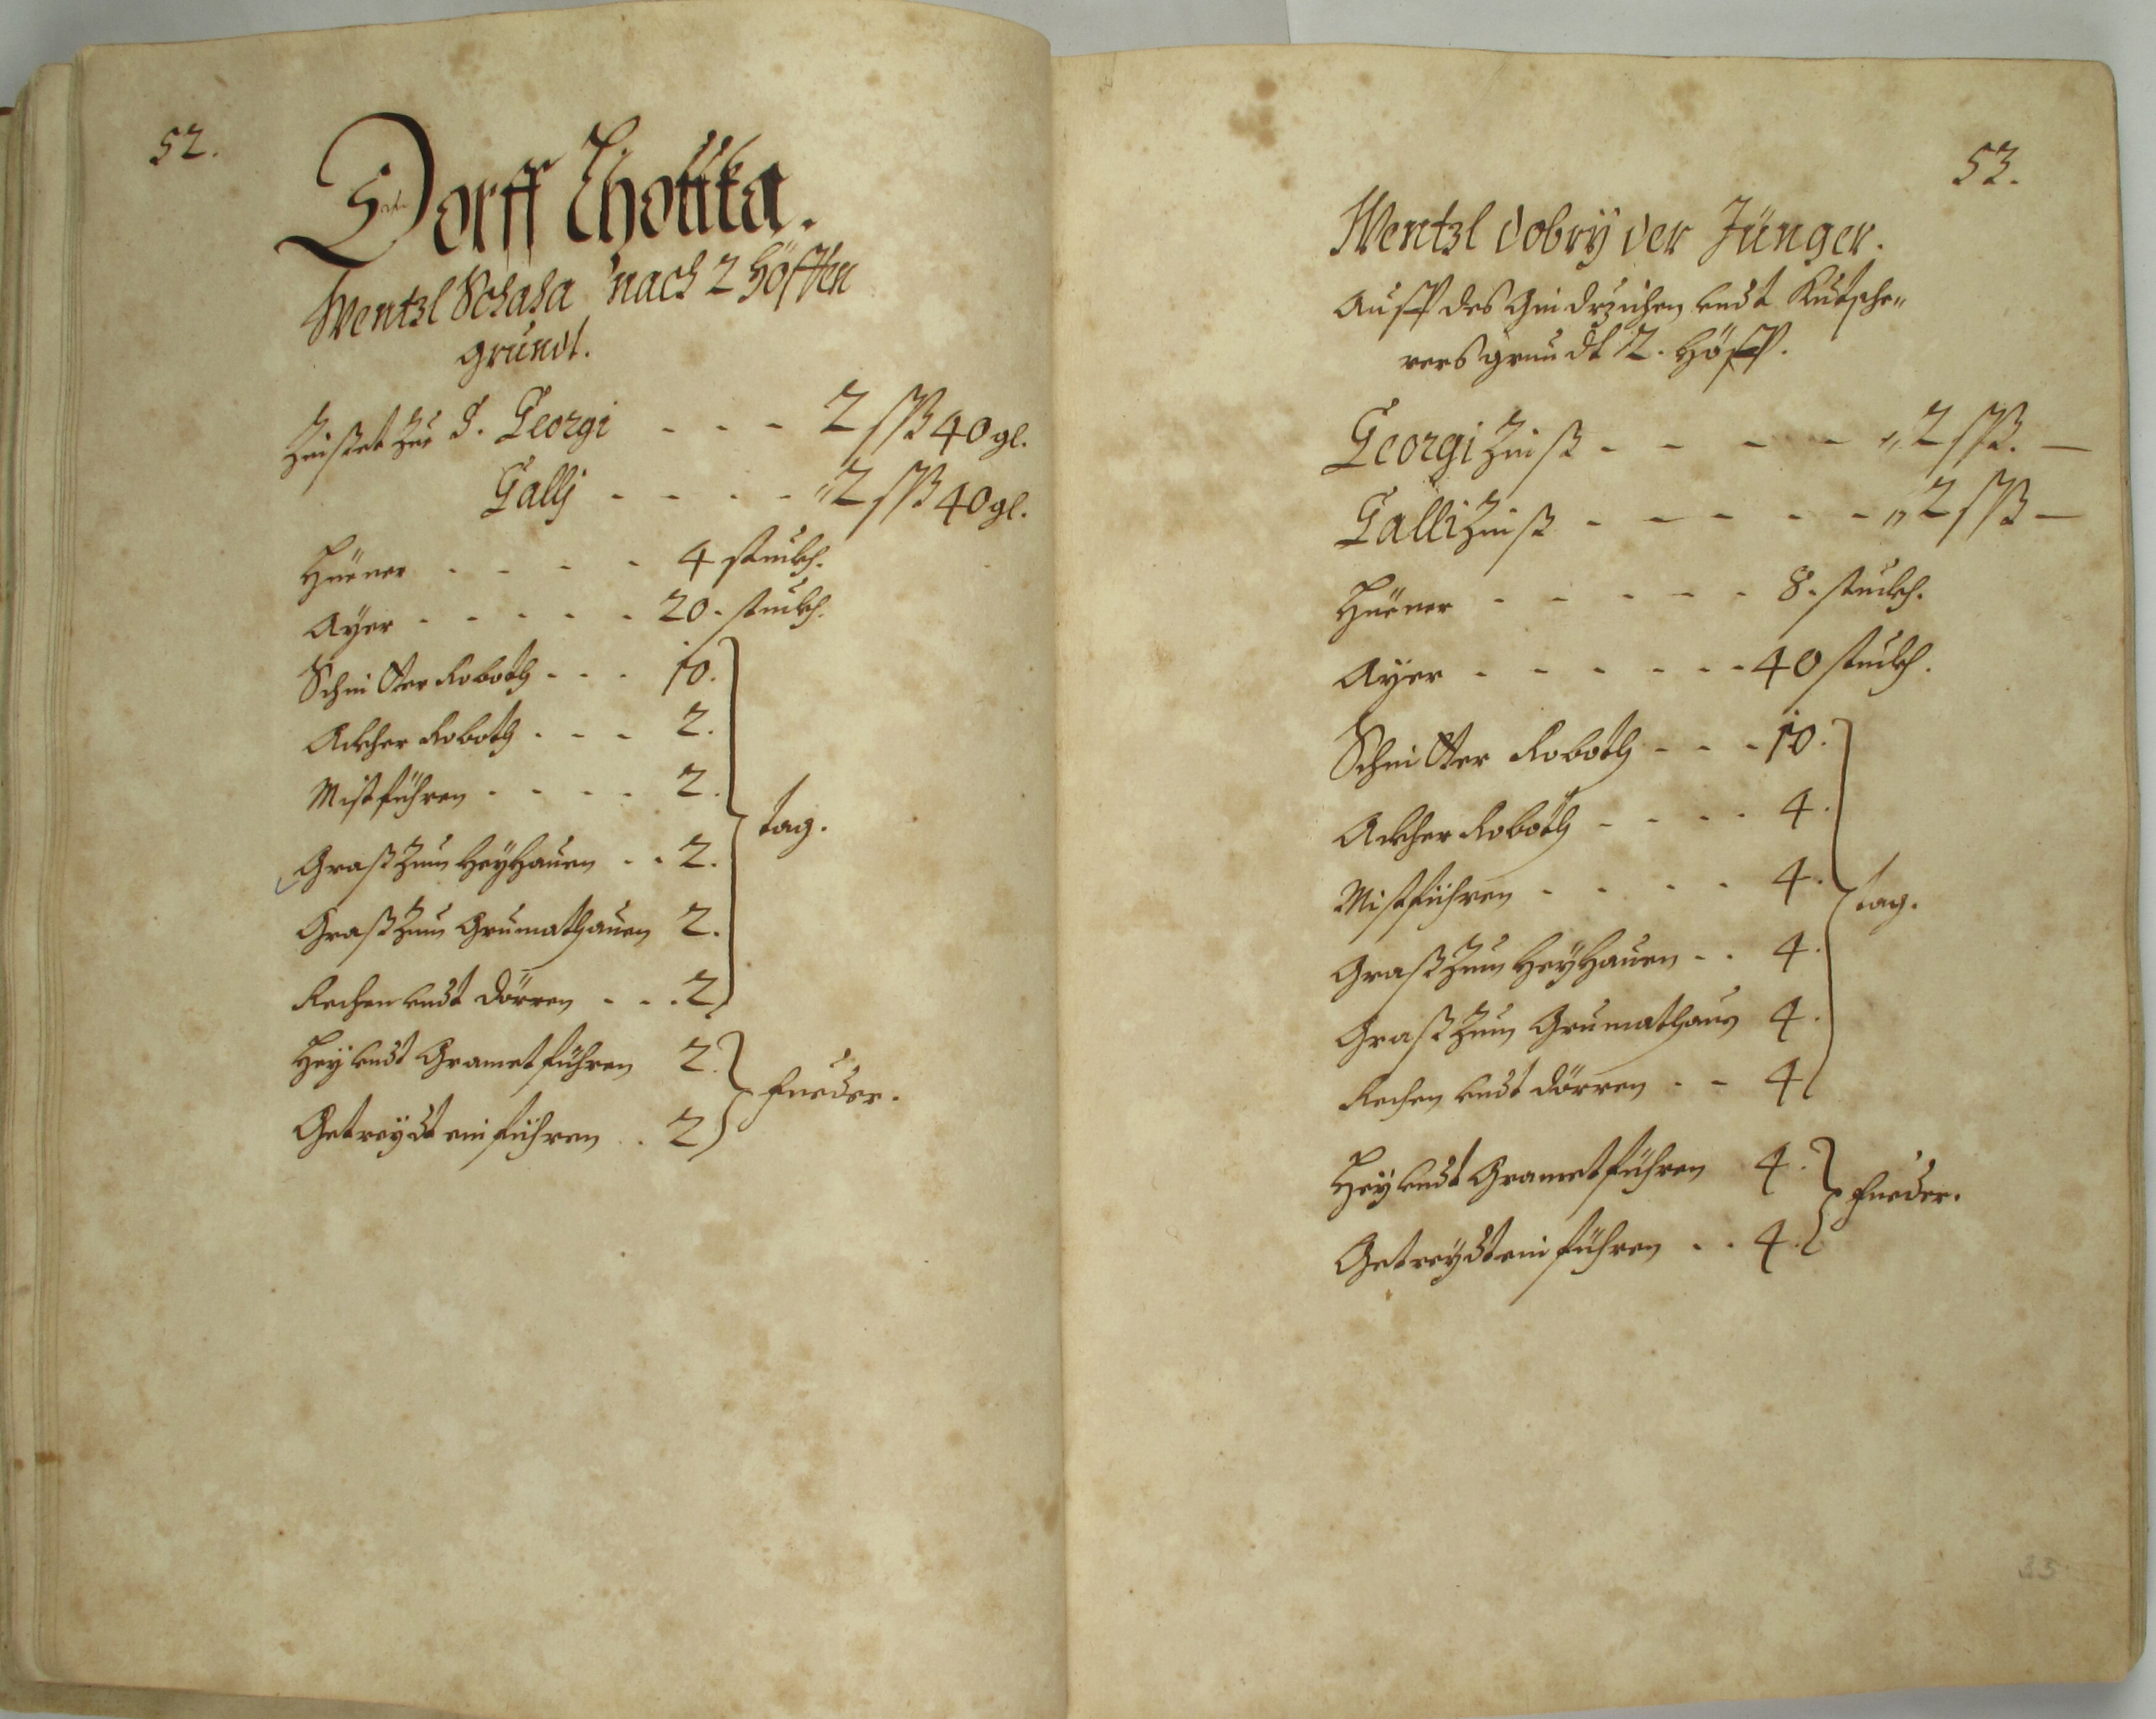 52.
Dorff Lhottka.
Wentzl Schaha nach 2 Höfften
grundt.
Zinßet Zue S. Georgi - - - 2 ßß 40 gl.
Gallj - - - - " 2 ßß 40 gl.
Hüener - - - - 4 stuckh.
Ayer - - - - - 20. stuckh.
Schnitter Roboth - - - 10.
Ackher Roboth - - - 2.
Mistführen - - - - 2.
tag.
Graß Zum Heyhauen - - 2.
Graß Zum Grumathauen 2.
Rechen undt dörren - - - 2
Hey undt Grametführen 2.
Fueder.
Getreydt einführen - - 2
53.
Wentzl dobrÿ der Jünger.
Auff des undt Kutsche"
rers grundt 2. Höff.
Georgi Zinß - - - - - " 2 ßß. —
Galli Zinß - - - - - " 2 ßß —
Hüener - - - - - 8. stuckh.
Ayer - - - - - - 40 stuckh.
Schnitter Roboth - - - 10.
Ackher Roboth - - - - 4.
Mistführen - - - - 4.
tag.
Graß Zum Heyhauen - - 4.
Graß Zum Grumathaun 4.
Rechen undt dörren - - 4
Hey undt Grametführen 4.
Fueder.
Getreydt einführen - - 4.
35